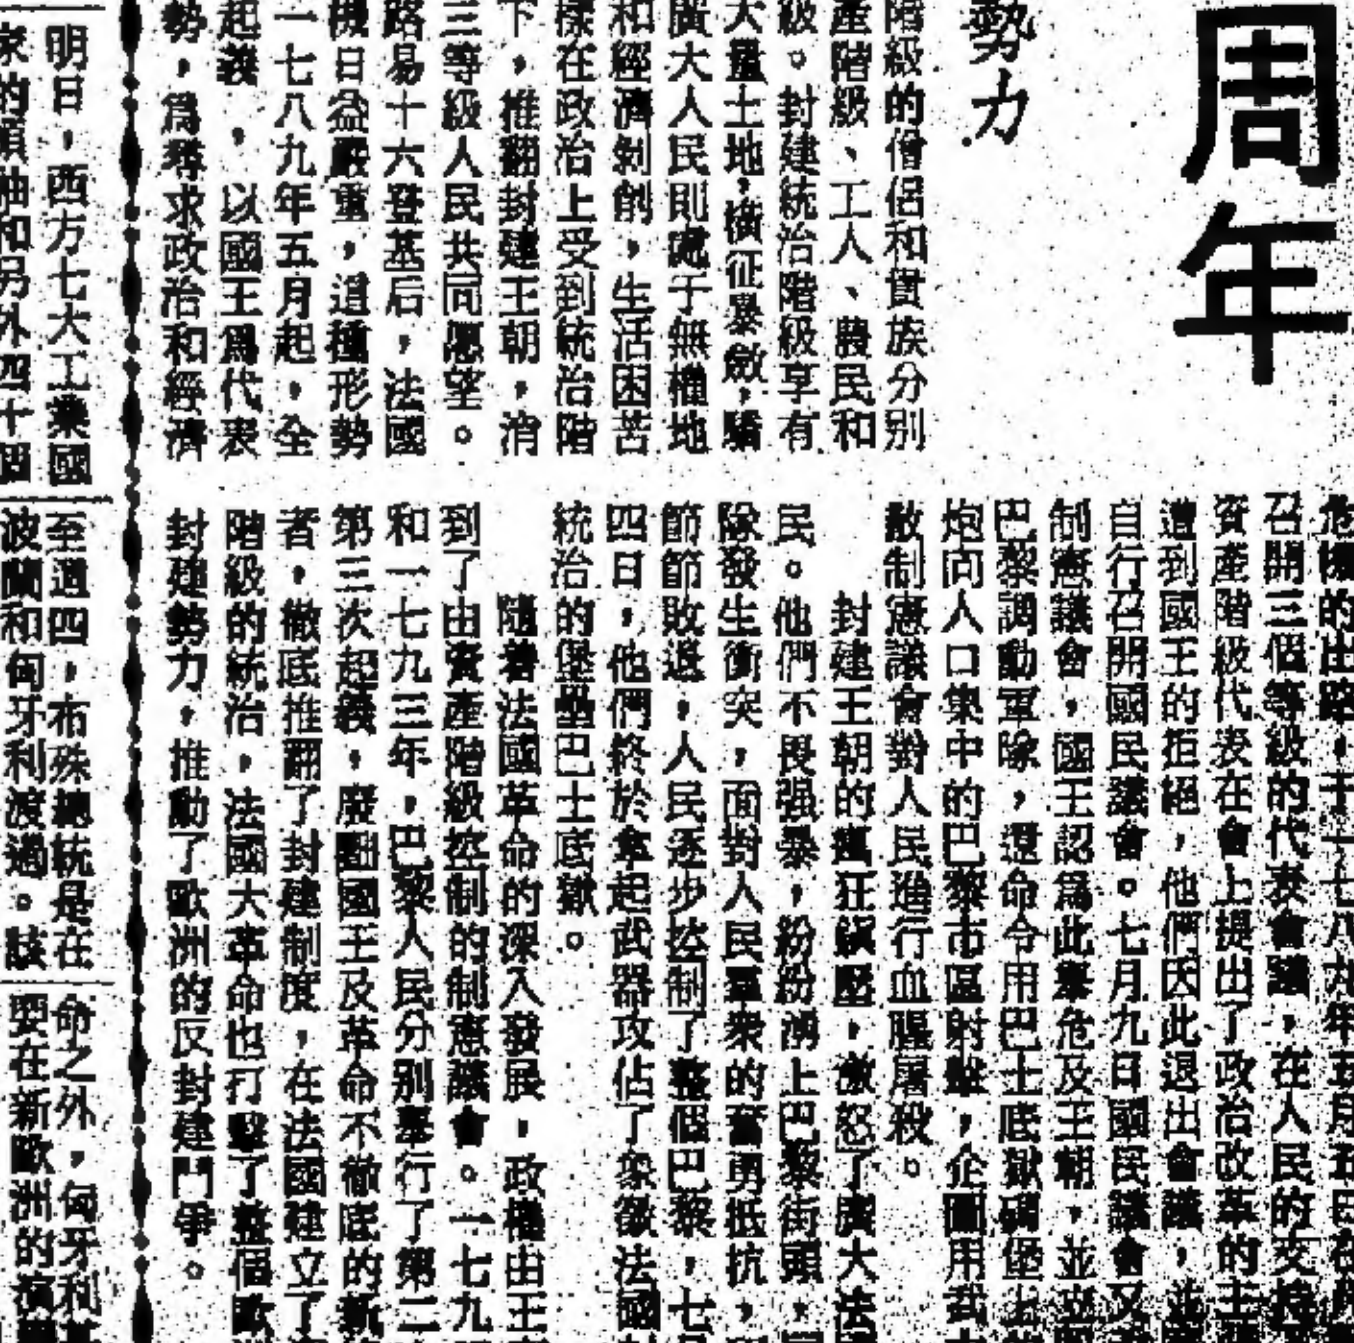 周年
勢力
階級的僧侣和貴族分別
産階級、工人、農民和
級。封建統治階級享有
大量土地，橫征暴斂，驕
廣大人民則處于無權地
和經濟剝削，生活困苦
樣在政治上受到統治階
下，推翻封建王朝，消
三等級人民共同愿望。
路易十六登基后，法國
機日益嚴重，這種形勢
一七八九年五月起，全
起義，以國王爲代表
勢，爲尋求政治和經濟
危機的出路，于一七八九年五月五日在
召開三個等級的代表會議，在人民的支持
資産階級代表在會上提出了政治改革的主
遭到國王的拒絕，他們因此退出會議，並
自行召開國民議會。七月九日國民議會又
制憲議會，國王認爲此舉危及王朝，並
巴黎調動軍隊，還命令用巴士底獄碉堡上
炮向人口集中的巴黎市區射擊，企圖用武
散制憲議會對人民進行血腥屠殺。
封建王朝的瘋狂鎮壓，激怒了廣大法
民。他們不畏强暴，紛紛湧上巴黎街頭，
隊發生衝突，面對人民羣衆的奮勇抵抗，
節節敗退，人民逐步控制了整個巴黎，七
四日，他們終於拿起武器攻佔了象徵法國
統治的堡壘巴士底獄。
隨着法國革命的深入發展，政權由王
到了由資産階級控制的制憲議會。一七九
和一七九三年，巴黎人民分别舉行了第二
第三次起義，廢黜國王及革命不徹底的
者，徹底推翻了封建制度，在法國建立了
階級的統治，法國大革命也打擊了整個歐
封建勢力，推動了歐洲的反封建鬥爭。
明日，西方七大工業國
家的領袖和另外四十個
至週四，布殊總統是在
波蘭和匈牙利渡過。該
命之外，匈牙利
要在新歐洲的